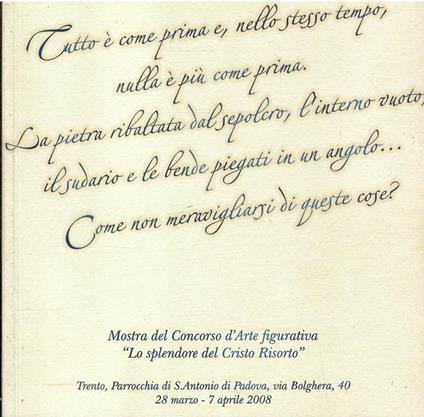 Tutto è come prima e, nello stesso tempo,
nulla è più come prima.
La pietra ribaltata dal sepolcro, l'interno vuoto,
il sudario e le bende piegati in un angolo...
Come non meravigliarsi di queste cose?
Mostra del Concorso d'Arte figurativa
"Lo splendore del Cristo Risorto"
Trento, Parrocchia di S.Antonio di Padova, via Bolghera, 40
28 marzo - 7 aprile 2008